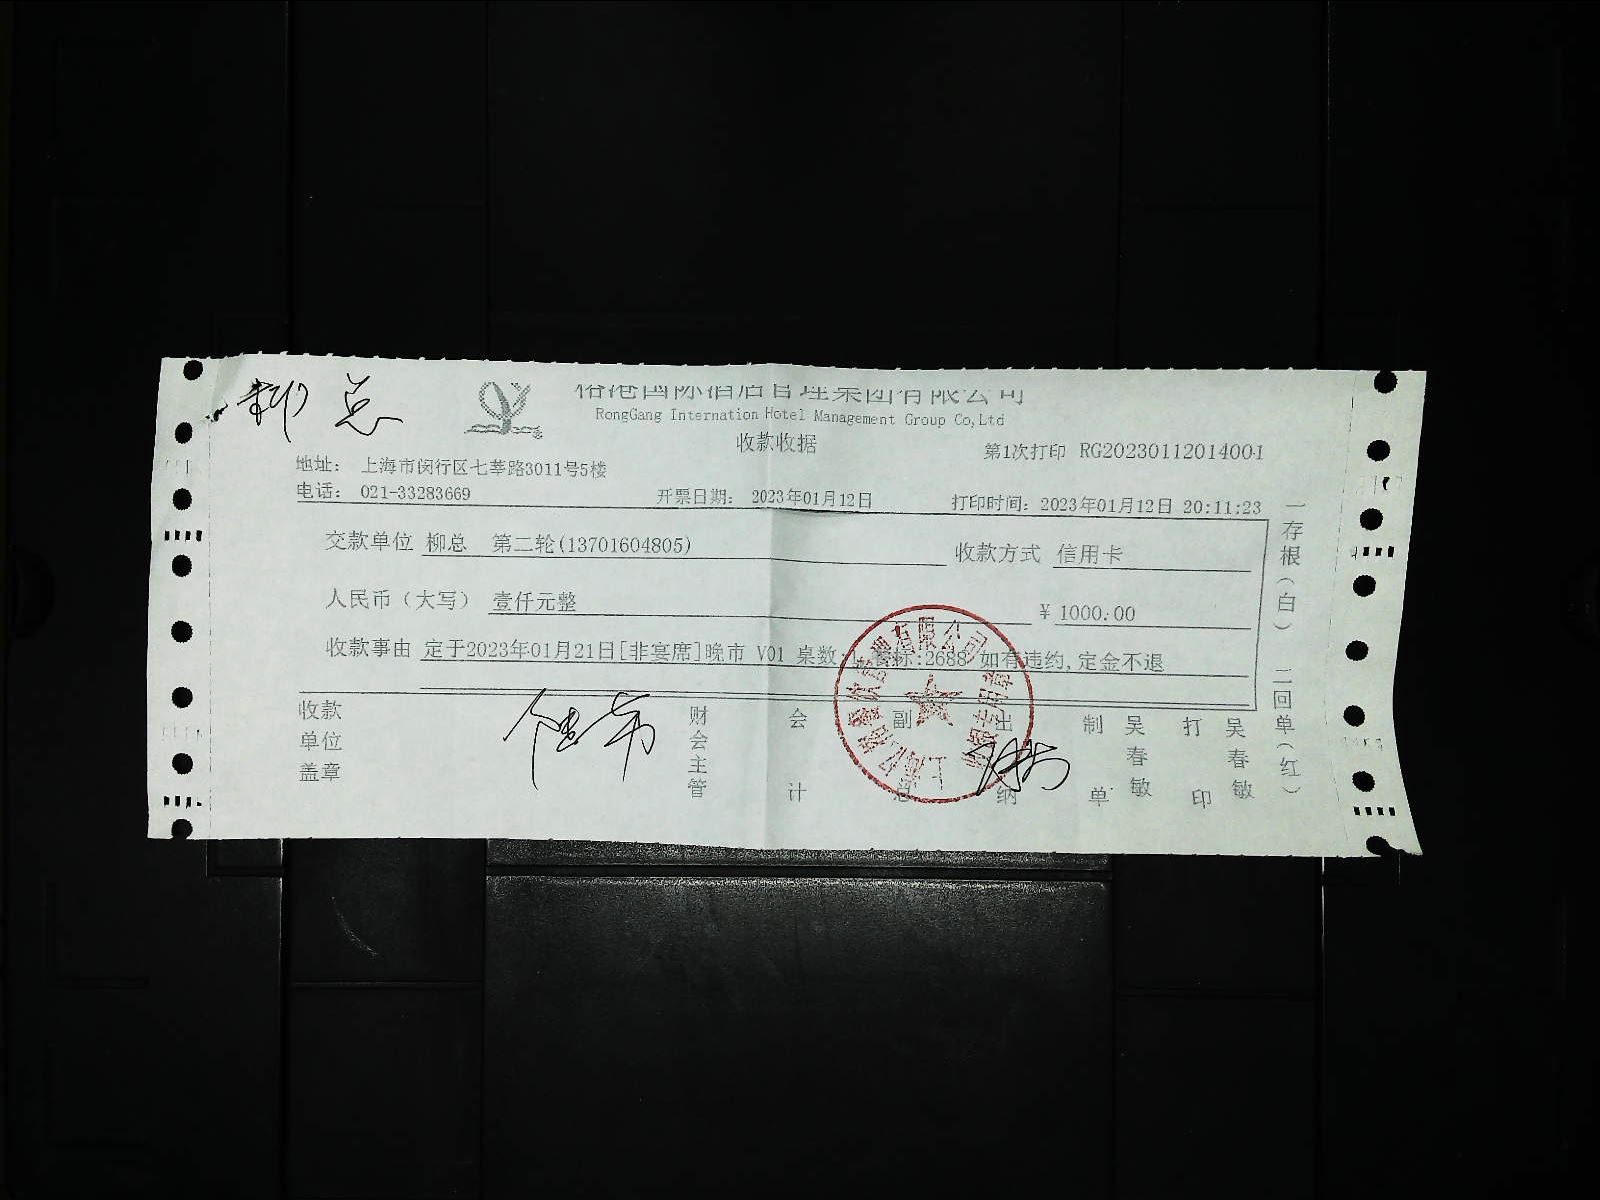 柳总
裕港国际酒店管理集团有限公司
RongGang Internation Hotel Management Group Co,Ltd
收款收据
第1次打印 RG202301120140001
地址： 上海市闵行区七莘路3011号5楼
电话： 021-33283669 开票日期： 2023年01月12日 打印时间：2023年01月12日 20:11:23
交款单位 柳总 第二轮(13701604805) 收款方式 信用卡
人民币（大写） 壹仟元整 ¥ 1000.00
收款事由 定于2023年01月21日[非宴席]晚市 V01 桌数:1 餐标:2688 如有违约,定金不退
收款单位盖章 财会主管 会计 副总 出纳 制单 吴春敏 打印 吴春敏
一存根（白） 二回单（红）